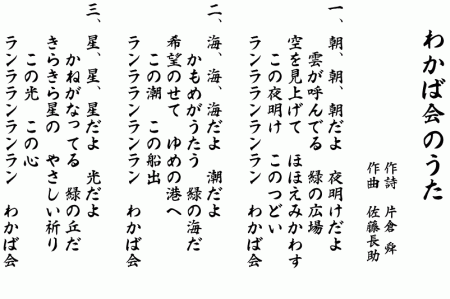 わかば会のうた
作詩　片倉　舜
作曲　佐藤長助
一、朝、朝、朝だよ　夜明けだよ
雲が呼んでる　緑の広場
空を見上げて　ほほえみかわす
この夜明け　このつどい
ランラランランラン　わかば会
二、海、海、海だよ　潮だよ
かもめがうたう　緑の海だ
希望のせて　ゆめの港へ
この潮　この船出
ランラランランラン　わかば会
三、星、星、星だよ　光だよ
かねがなってる　緑の丘だ
きらきら星の　やさしい祈り
この光　この心
ランラランランラン　わかば会